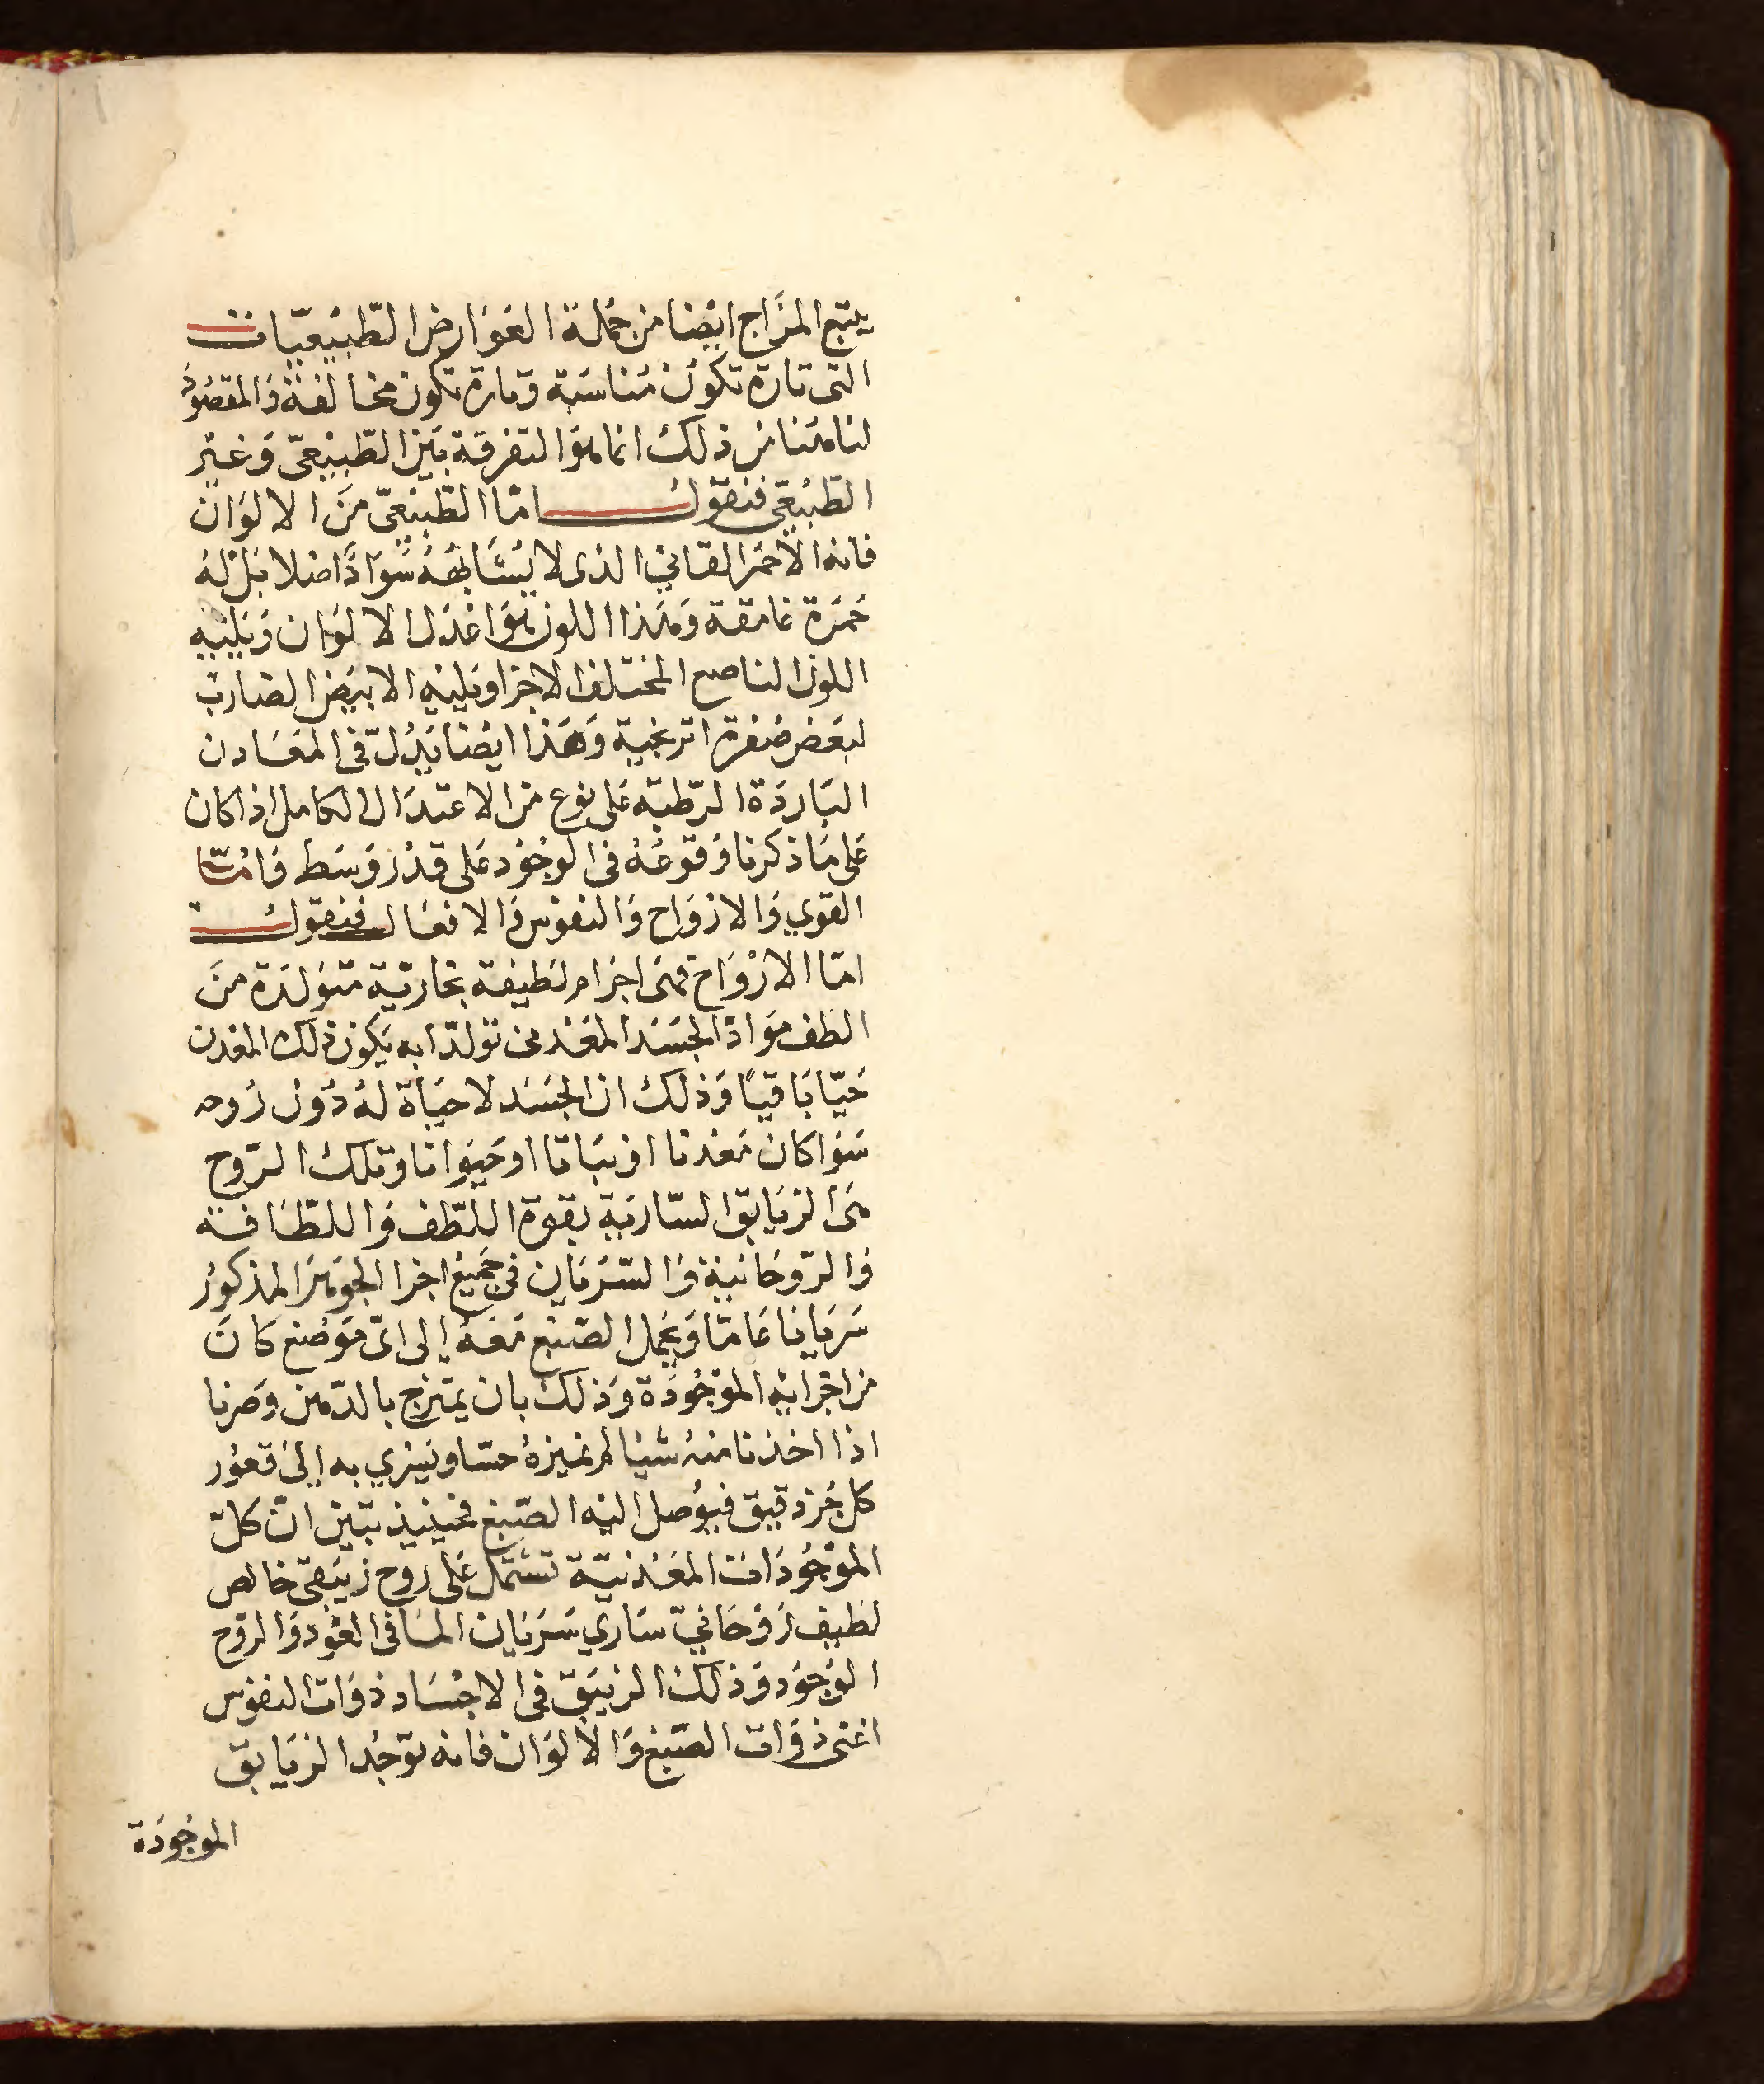 يتبع المزاج ايضا من جملة العوارض الطبيعيات
التى تارة تكون مناسبة وتارة تكون مخالفة والمقصود
لنا هنا من ذلك انما هو التفرقة بين الطبيعى وغير
الطبيعى فنقول اما الطبيعى من الالوان
فانه الاحمر القاني الذى لا يشابهه سوادا اصلا بل له
حمرة غامقة وهذا اللون هو اعدل الالوان ويليه
اللون الناصع المختلف الاجزا ويليه الابيض الضارب
لبعض صفرة اترنجية وهذا ايضا يدل فى المعادن
الباردة الرطبة على نوع من الاعتدال الكامل اذا كان
على ما ذكرنا وقوعه فى الوجود على قدر وسط فامّا
القوي والارواح والنفوس والافعال فنقول
امّا الارواح فهى اجرام لطيفة بخاريّة متولدة من
الطف مواد الجسد المعدنى تولدا به يكون ذلك المعدن
حيّا باقيًا وذلك ان الجسد لا حياة له دون روحه
سوا كان معدنا او نباتا او حيوانا وتلك الرّوح
هى الزيابق السّارية بقوة اللطف واللطافة
والروحانية والسّريان فى جميع اجزا الجوهر المذكور
سريانا عامّا ويحمل الصبغ معه إلى اىّ موضع كان
من اجزايه الموجودة وذلك بان يمتزج بالدّهن وصرنا
اذا اخذنا منه شيا لم نميزهُ حسّا ويسري به إلى قعور
كل جزء دقيق فيوصل اليه الصبغ فحينيذ تبين انّ كلّ
الموجودات المعدنيّة تشتمل على روح زيبقى خالص
لطيف روحانيّ ساري سريان الما فى العود والروح
الوجود وذلك الزيبق فى الاجساد ذوات النفوس
اعنى ذوات الصّبغ والالوان فانه توجد الزيابق
الموجودة